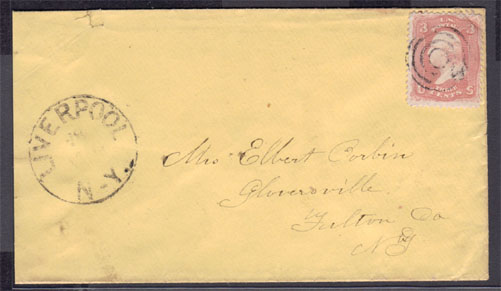 LIVERPOOL
N-Y.
3 U.S. 3
CENTS
Mrs Elbert Corbin
Gloversville
Fulton Co
NY